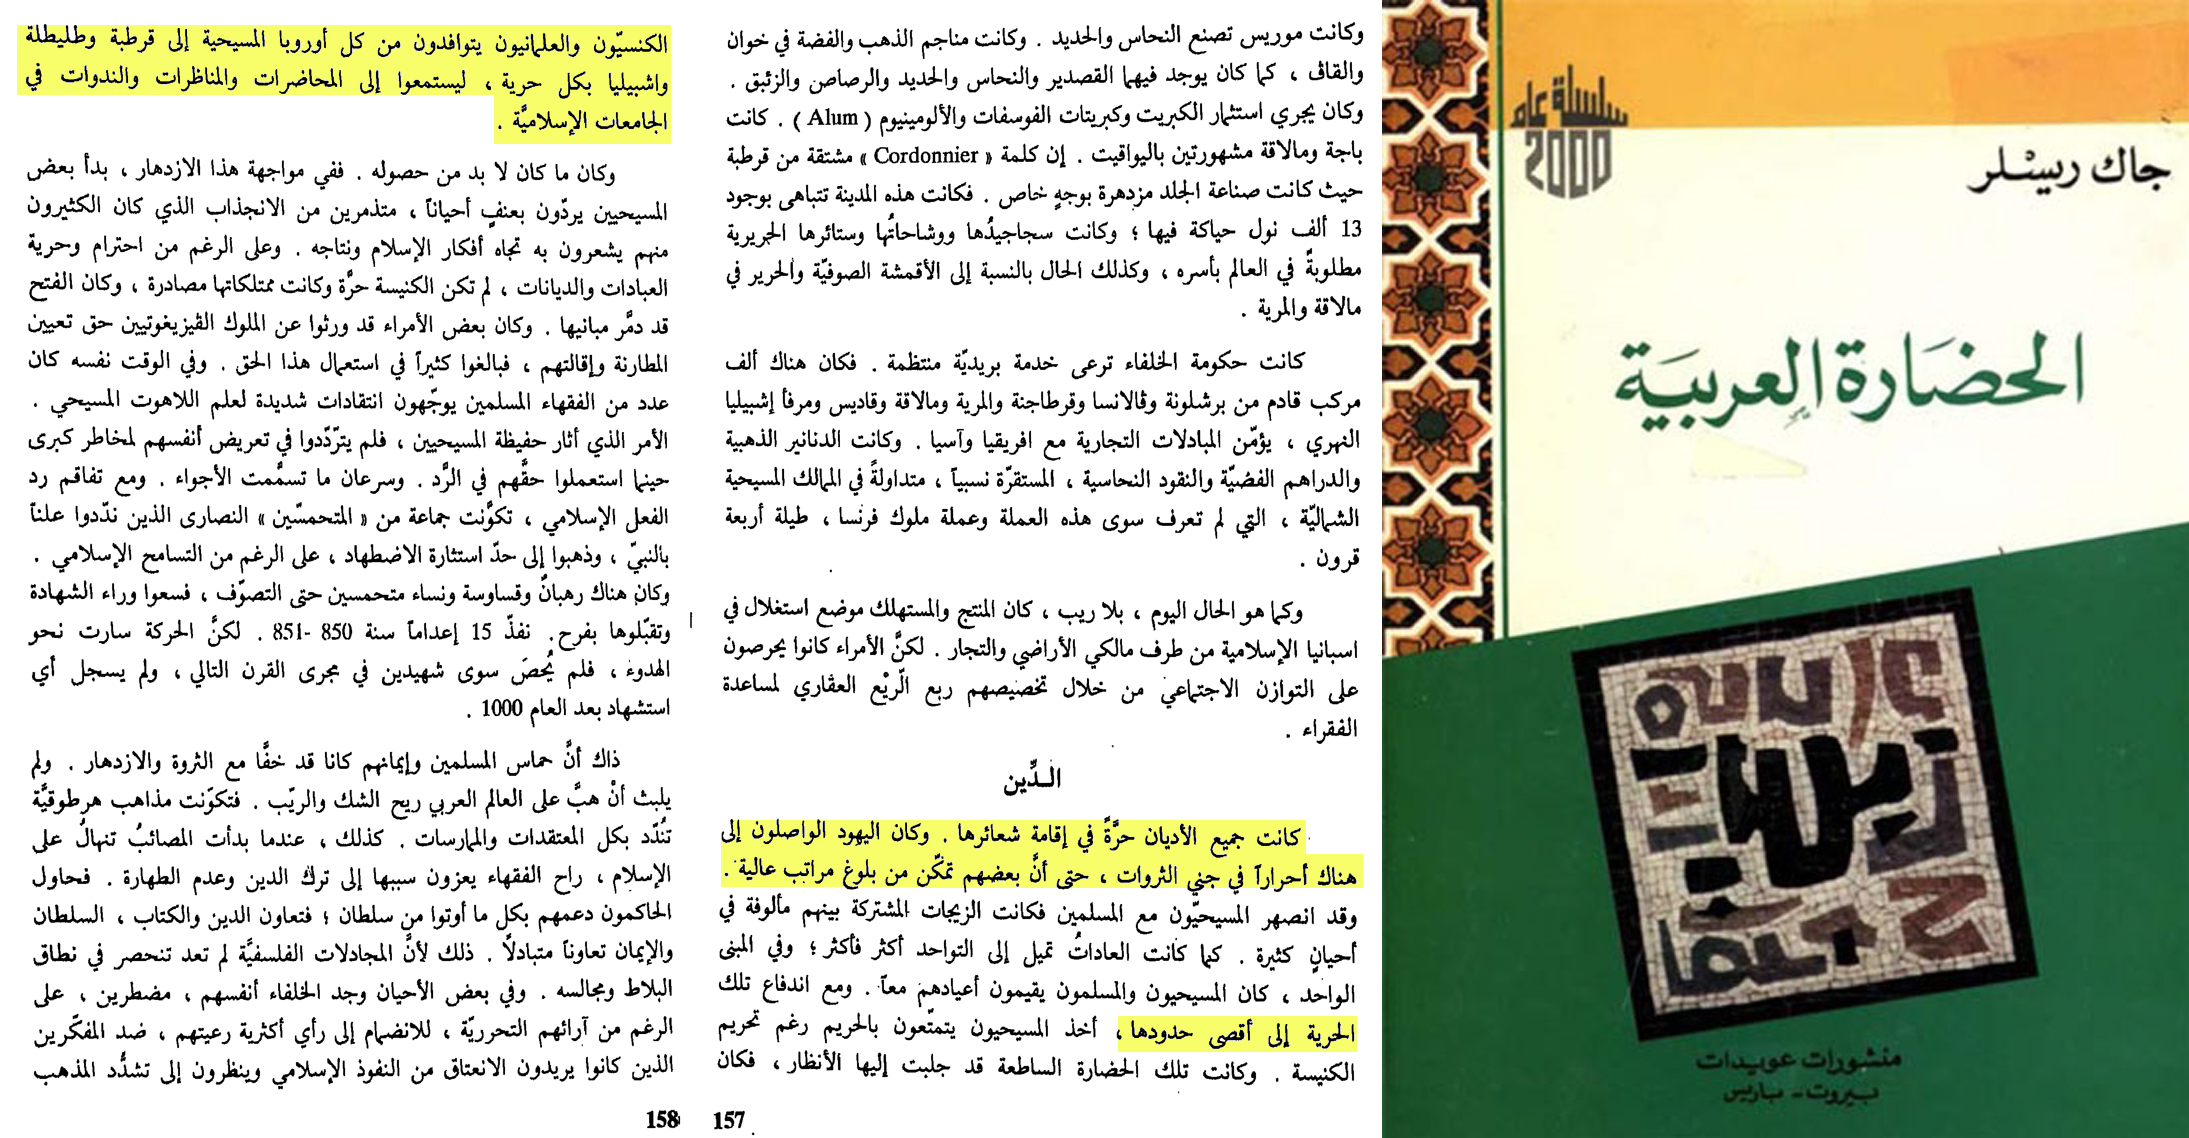 وكانت موريس تصنع النحاس والحديد . وكانت مناجم الذهب والفضة في خوان
والقاڤ ، كما كان يوجد فيهما القصدير والنحاس والحديد والرصاص والزئبق .
وكان يجري استثمار الكبريت وكبريتات الفوسفات والألومينيوم ( Alum ) . كانت
باجة ومالاقة مشهورتين باليواقيت . إن كلمة « Cordonnier » مشتقة من قرطبة
حيث كانت صناعة الجلد مزدهرة بوجهٍ خاص . فكانت هذه المدينة تتباهى بوجود
13 ألف نول حياكة فيها ؛ وكانت سجاجيدُها ووشاحاتُها وستائرها الحريرية
مطلوبةً في العالم بأسره ، وكذلك الحال بالنسبة إلى الأقمشة الصوفيّة والحرير في
مالاقة والمرية .
كانت حكومة الخلفاء ترعى خدمة بريديّة منتظمة . فكان هناك ألف
مركب قادم من برشلونة وڤالانسا وقرطاجنة والمرية ومالاقة وقاديس ومرفأ إشبيليا
النهري ، يؤمّن المبادلات التجارية مع افريقيا وآسيا . وكانت الدنانير الذهبية
والدراهم الفضيّة والنقود النحاسية ، المستقرّة نسبياً ، متداولةً في الممالك المسيحية
الشماليّة ، التي لم تعرف سوى هذه العملة وعملة ملوك فرنسا ، طيلة أربعة
قرون .
وكما هو الحال اليوم ، بلا ريب ، كان المنتج والمستهلك موضع استغلال في
اسبانيا الإسلامية من طرف مالكي الأراضي والتجار . لكنَّ الأمراء كانوا يحرصون
على التوازن الاجتماعي من خلال تخصيصهم ربع الرّيْع العقاري لمساعدة
الفقراء .
الدِّين
كانت جميع الأديان حرَّةً في إقامة شعائرها . وكان اليهود الواصلون إلى
هناك أحراراً في جني الثروات ، حتى أنَّ بعضهم تمكّن من بلوغ مراتب عالية .
وقد انصهر المسيحيّون مع المسلمين فكانت الزيجات المشتركة بينهم مألوفة في
أحيانٍ كثيرة . كما كانت العاداتُ تميل إلى التواحد أكثر فأكثر ؛ وفي المبنى
الواحد ، كان المسيحيون والمسلمون يقيمون أعيادهم معاً . ومع اندفاع تلك
الحرية إلى أقصى حدودها ، أخذ المسيحيون يتمتّعون بالحريم رغم تحريم
الكنيسة . وكانت تلك الحضارة الساطعة قد جلبت إليها الأنظار ، فكان
157
الكنسيّون والعلمانيون يتوافدون من كل أوروبا المسيحية إلى قرطبة وطليطلة
واشبيليا بكل حرية ، ليستمعوا إلى المحاضرات والمناظرات والندوات في
الجامعات الإسلاميَّة .
وكان ما كان لا بد من حصوله . ففي مواجهة هذا الازدهار ، بدأ بعض
المسيحيين يردّون بعنفٍ أحياناً ، متذمرين من الانجذاب الذي كان الكثيرون
منهم يشعرون به تجاه أفكار الإسلام ونتاجه . وعلى الرغم من احترام وحرية
العبادات والديانات ، لم تكن الكنيسة حرَّة وكانت ممتلكاتها مصادرة ، وكان الفتح
قد دمَّر مبانيها . وكان بعض الأمراء قد ورثوا عن الملوك الڤيزيغوتيين حق تعيين
المطارنة وإقالتهم ، فبالغوا كثيراً في استعمال هذا الحق . وفي الوقت نفسه كان
عدد من الفقهاء المسلمين يوجّهون انتقادات شديدة لعلم اللاهوت المسيحي .
الأمر الذي أثار حفيظة المسيحيين ، فلم يتردّدوا في تعريض أنفسهم لمخاطر كبرى
حينما استعملوا حقَّهم في الرَّد . وسرعان ما تسمَّمت الأجواء . ومع تفاقم رد
الفعل الإسلامي ، تكوَّنت جماعة من « المتحمسّين » النصارى الذين ندّدوا علناً
بالنبيّ ، وذهبوا إلى حدّ استثارة الاضطهاد ، على الرغم من التسامح الإسلامي .
وكان هناك رهبانٌ وقساوسة ونساء متحمسين حتى التصوّف ، فسعوا وراء الشهادة
وتقبّلوها بفرح . نفذّ 15 إعداماً سنة 850 -851 . لكنَّ الحركة سارت نحو
الهدوء ، فلم يُحصَ سوى شهيدين في مجرى القرن التالي ، ولم يسجل أي
استشهاد بعد العام 1000 .
ذاك أنَّ حماس المسلمين وإيمانهم كانا قد خفَّا مع الثروة والازدهار . ولم
يلبث أنْ هبَّ على العالم العربي ريح الشك والريّب . فتكوّنت مذاهب هرطوقيَّة
تنُدّد بكل المعتقدات والممارسات . كذلك ، عندما بدأت المصائبُ تنهالُ على
الإسلام ، راح الفقهاء يعزون سببها إلى ترك الدين وعدم الطهارة . فحاول
الحاكمون دعمهم بكل ما أوتوا من سلطان ؛ فتعاون الدين والكتاب ، السلطان
والإيمان تعاوناً متبادلاً . ذلك لأنَّ المجادلات الفلسفيَّة لم تعد تنحصر في نطاق
البلاط ومجالسه . وفي بعض الأحيان وجد الخلفاء أنفسهم ، مضطرين ، على
الرغم من آرائهم التحرريّة ، للانضمام إلى رأي أكثرية رعيتهم ، ضد المفكّرين
الذين كانوا يريدون الانعتاق من النفوذ الإسلامي وينظرون إلى تشدُّد المذهب
158
سلسلة عام
2000
جاك ريسْلر
الحضَارة العربيَة
منشورات عويدات
بيروت - باريس